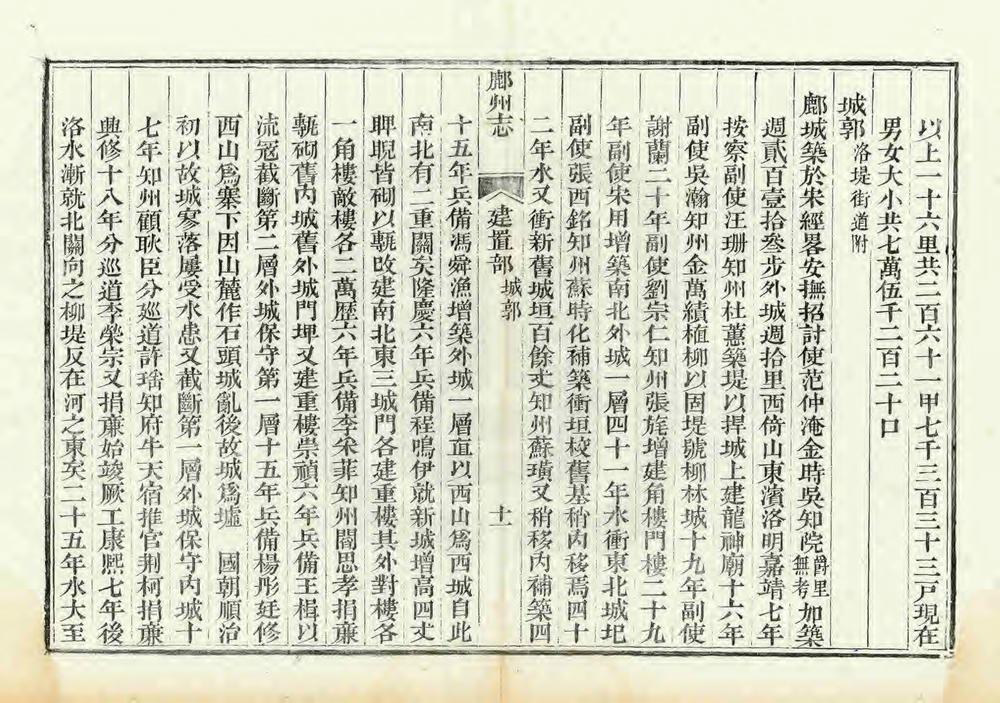 以上一十六里共二百六十一甲七千三百三十三戸現在
男女大小共七萬伍千二百二十口
城郭洛堤街道附
鄜城築於宋經畧安撫招討使范仲淹金時吳知院爵里無考加築
週貳百壹拾叄步外城週拾里西倚山東濱洛明嘉靖七年
按察副使汪珊知州杜蕙築堤以捍城上建龍神廟十六年
副使吳瀚知州金萬績植柳以固堤號柳林城十九年副使
謝蘭二十年副使劉宗仁知州張旌增建角樓門樓二十九
年副使宋用增築南北外城一層四十一年水衝東北城圯
副使張西銘知州蘇時化補築衝垣校舊基稍內移焉四十
二年水又衝新舊城垣百餘丈知州蘇璜又稍移內補築四
鄜州志
建置部
城郭
十一
十五年兵備馮舜漁增築外城一層直以西山爲西城自此
南北有二重關矣隆慶六年兵備程鳴伊就新城增高四丈
睥睨皆砌以甎改建南北東三城門各建重樓其外對樓各
一角樓敵樓各二萬歷六年兵備李宋菲知州閻思孝捐亷
甎砌舊內城舊外城門埤又建重樓崇禎六年兵備王楫以
流寇截斷第二層外城保守第一層十五年兵備楊彤廷修
西山爲寨下因山麓作石頭城亂後故城爲墟　國朝順治
初以故城寥落屢受水患又截斷第一層外城保守內城十
七年知州顧耿臣分廵道許瑶知府牛天宿推官荆柯捐亷
興修十八年分巡道李榮宗又捐亷始竣厥工康熙七年後
洛水漸就北關向之柳堤反在河之東矣二十五年水大至